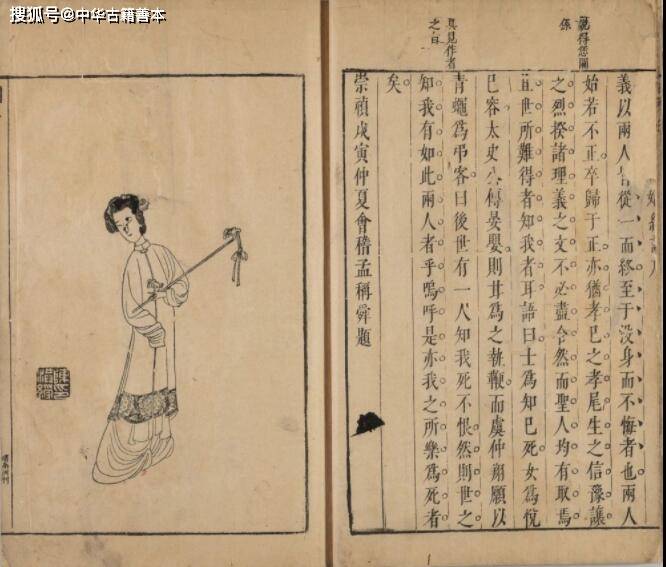 搜狐号@中华古籍善本
說得恁關
係
具見作者
之旨
義以兩人皆從一而終至于没身而不悔者也兩人
始若不正卒歸于正亦猶孝已之孝尾生之信豫讓
之烈揆諸理義之文不必盡合然而聖人均有取焉
且世所難得者知我者耳語曰士爲知已死女爲悅
已容太史公傳晏嬰則甘爲之執鞭而虞仲翔願以
青蠅爲弔客曰後世有一人知我死不恨然則世之
知我有如此兩人者乎嗚呼是亦我之所樂爲死者
矣
崇禎戊寅仲夏會稽孟稱舜題
項南洲刊